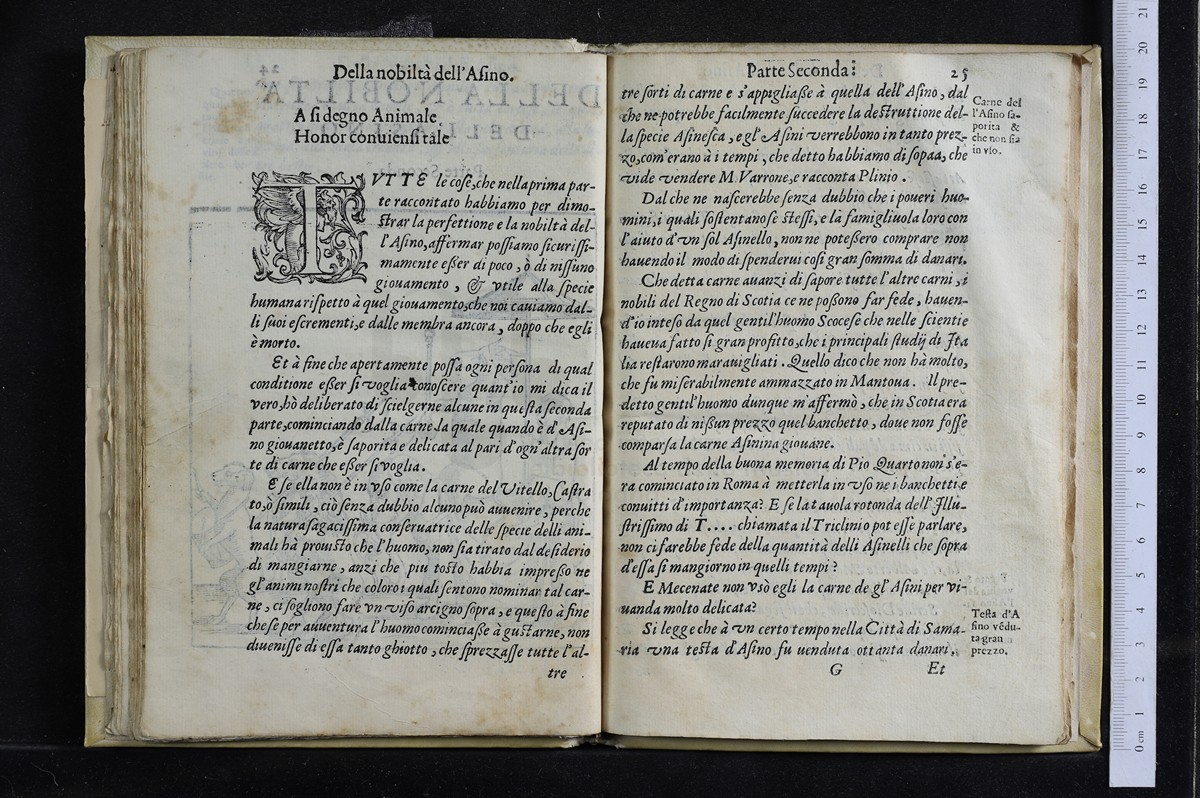 Della nobiltà dell'Asino.
A si degno Animale
Honor conuiensi tale
TVTTE le cose, che nella prima par-
te raccontato habbiamo per dimo-
strar la perfettione e la nobiltà del-
l'Asino, affermar possiamo sicurissi-
mamente esser di poco, ò di nissuno
giouamento, & vtile alla specie
humana rispetto à quel giouamento, che noi cauiamo dal-
li suoi escrementi, e dalle membra ancora, doppo che egli
è morto.
Et à fine che apertamente possa ogni persona di qual
conditione esser si voglia conoscere quant'io mi dica il
vero, hò deliberato di scielgerne alcune in questa seconda
parte, cominciando dalla carne la quale quando è d'Asi-
no giouanetto, è saporita e delicata al pari d'ogn'altra sor
te di carne che esser si voglia.
E se ella non è in vso come la carne del Vitello, Castra
to, ò simili, ciò senza dubbio alcuno può auuenire, perche
la natura sagacissima conseruatrice delle specie delli ani-
mali hà prouisto che l'huomo, non sia tirato dal desiderio
di mangiarne, anzi che piu tosto habbia impresso ne
gl'animi nostri che coloro i quali sentono nominar tal car-
ne, ci sogliono fare vn viso arcigno sopra, e questo à fine
che se per auuentura l'huomo cominciasse à gustarne, non
diuenisse di essa tanto ghiotto, che sprezzasse tutte l'al-
tre
Parte Seconda:
25
tre sorti di carne e s'appigliasse à quella dell'Asino, dal
che ne potrebbe facilmente succedere la destruttione del-
la specie Asinesca, e gl'Asini verrebbono in tanto prez-
zo, com'erano à i tempi, che detto habbiamo di sopaa, che
vide vendere M. Varrone, e racconta Plinio.
Dal che ne nascerebbe senza dubbio che i poueri huo-
mini, i quali sostentano se stessi, e là famigliuola loro con
l'aiuto d'vn sol Asinello, non ne potessero comprare non
hauendo il modo di spenderui cosi gran somma di danari.
Che detta carne auanzi di sapore tutte l'altre carni, i
nobili del Regno di Scotia ce ne possono far fede, hauen-
d'io inteso da quel gentil'huomo Scocese che nelle scientie
haueua fatto si gran profitto, che i principali studij di Ita
lia restarono marauigliati. Quello dico che non hà molto,
che fu miserabilmente ammazzato in Mantoua. Il pre-
detto gentil'huomo dunque m'affermò, che in Scotia era
reputato di nissun prezzo quel banchetto, doue non fosse
comparsa la carne Asinina giouane.
Al tempo della buona memoria di Pio Quarto non s'e-
ra cominciato in Roma à metterla in vso ne i banchetti, e
conuitti d'importanza? E se la tauola rotonda dell'Illu-
strissimo di T.... chiamata il Triclinio potesse parlare,
non ci farebbe fede della quantità delli Asinelli che sopra
d'essa si mangiorno in quelli tempi?
E Mecenate non vsò egli la carne de gl'Asini per vi-
uanda molto delicata?
Si legge che à vn certo tempo nella Città di Sama-
ria vna testa d'Asino fu uenduta ottanta danari,
G
Et
Carne del
l'Asino sa-
porita &
che non sia
in vso.
Testa d'A
sino vẽdu-
ta gran
prezzo.
0 cm 1 2 3 4 5 6 7 8 9 10 11 12 13 14 15 16 17 18 19 20 21